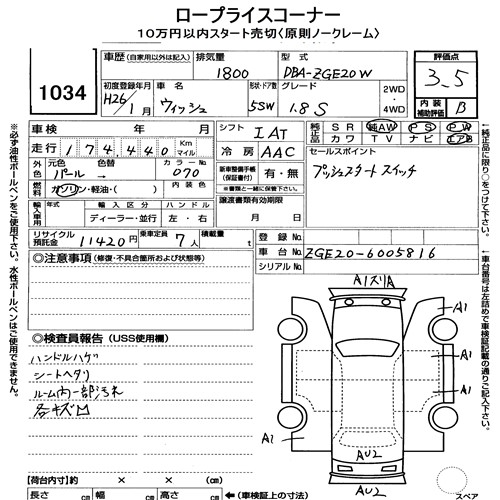 ロープライスコーナー
10万円以内スタート売切〈原則ノークレーム〉
1034
車歴 (自家用以外は記入) 排気量 1800 型式 DBA-ZGE20W 評価点 3.5
初度登録年月 H26/1月 車名 ウィッシュ 形状・ドア数 5SW グレード 1.8S 2WD・4WD 内装補助評価 B
車検 年 月 シフト IAT 純正品 SR 純AW PS PW
走行 174,440 Km マイル 冷房 AAC カワ TV ナビ エアB
外色 元色 パール → 色替 カラーNo 070 新車整備手帳(保証書付) 有・無 セールスポイント
燃料 ガソリン・軽油・( ) 内装色 ※書類と一緒に保管して下さい。 プッシュスタートスイッチ
輸入車用 年式 輸入区分 ディーラー・並行 ハンドル 左・右 譲渡書類有効期限 月 日
リサイクル預託金 11420円 乗車定員 7人 積載量 t 登録No
車台No ZGE20-6005816
シリアルNo
◎注意事項 (修復・不具合箇所および状態等)
A1スリA
A1
A1
A1
A1
A1
AU2
AU2
◎検査員報告 (USS使用欄)
ハンドルハゲ
シートヘタリ
ルーム内一部汚れ
各キズ凹
【荷台内寸】 約 × × cm
長さ cm 幅 cm 高さ cm ←(車検証上の寸法)
スペア
※必ず油性ボールペンをご使用下さい。水性ボールペンはご使用できません。
←純正品に限り○をつけて下さい。
←車台番号は左詰めで車検証記載の通りご記入下さい。